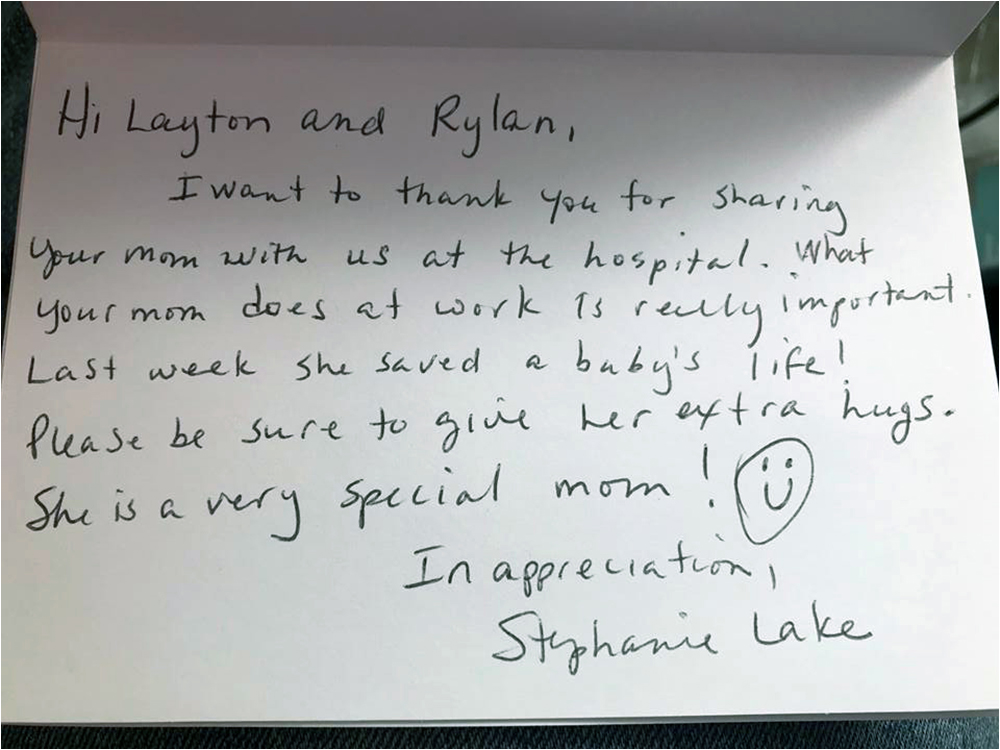 Hi Layton and Rylan,
I want to thank you for sharing
your mom with us at the hospital. What
your mom does at work is really important.
Last week she saved a baby's life!
Please be sure to give her extra hugs.
She is a very special mom!
In appreciation,
Stephanie Lake